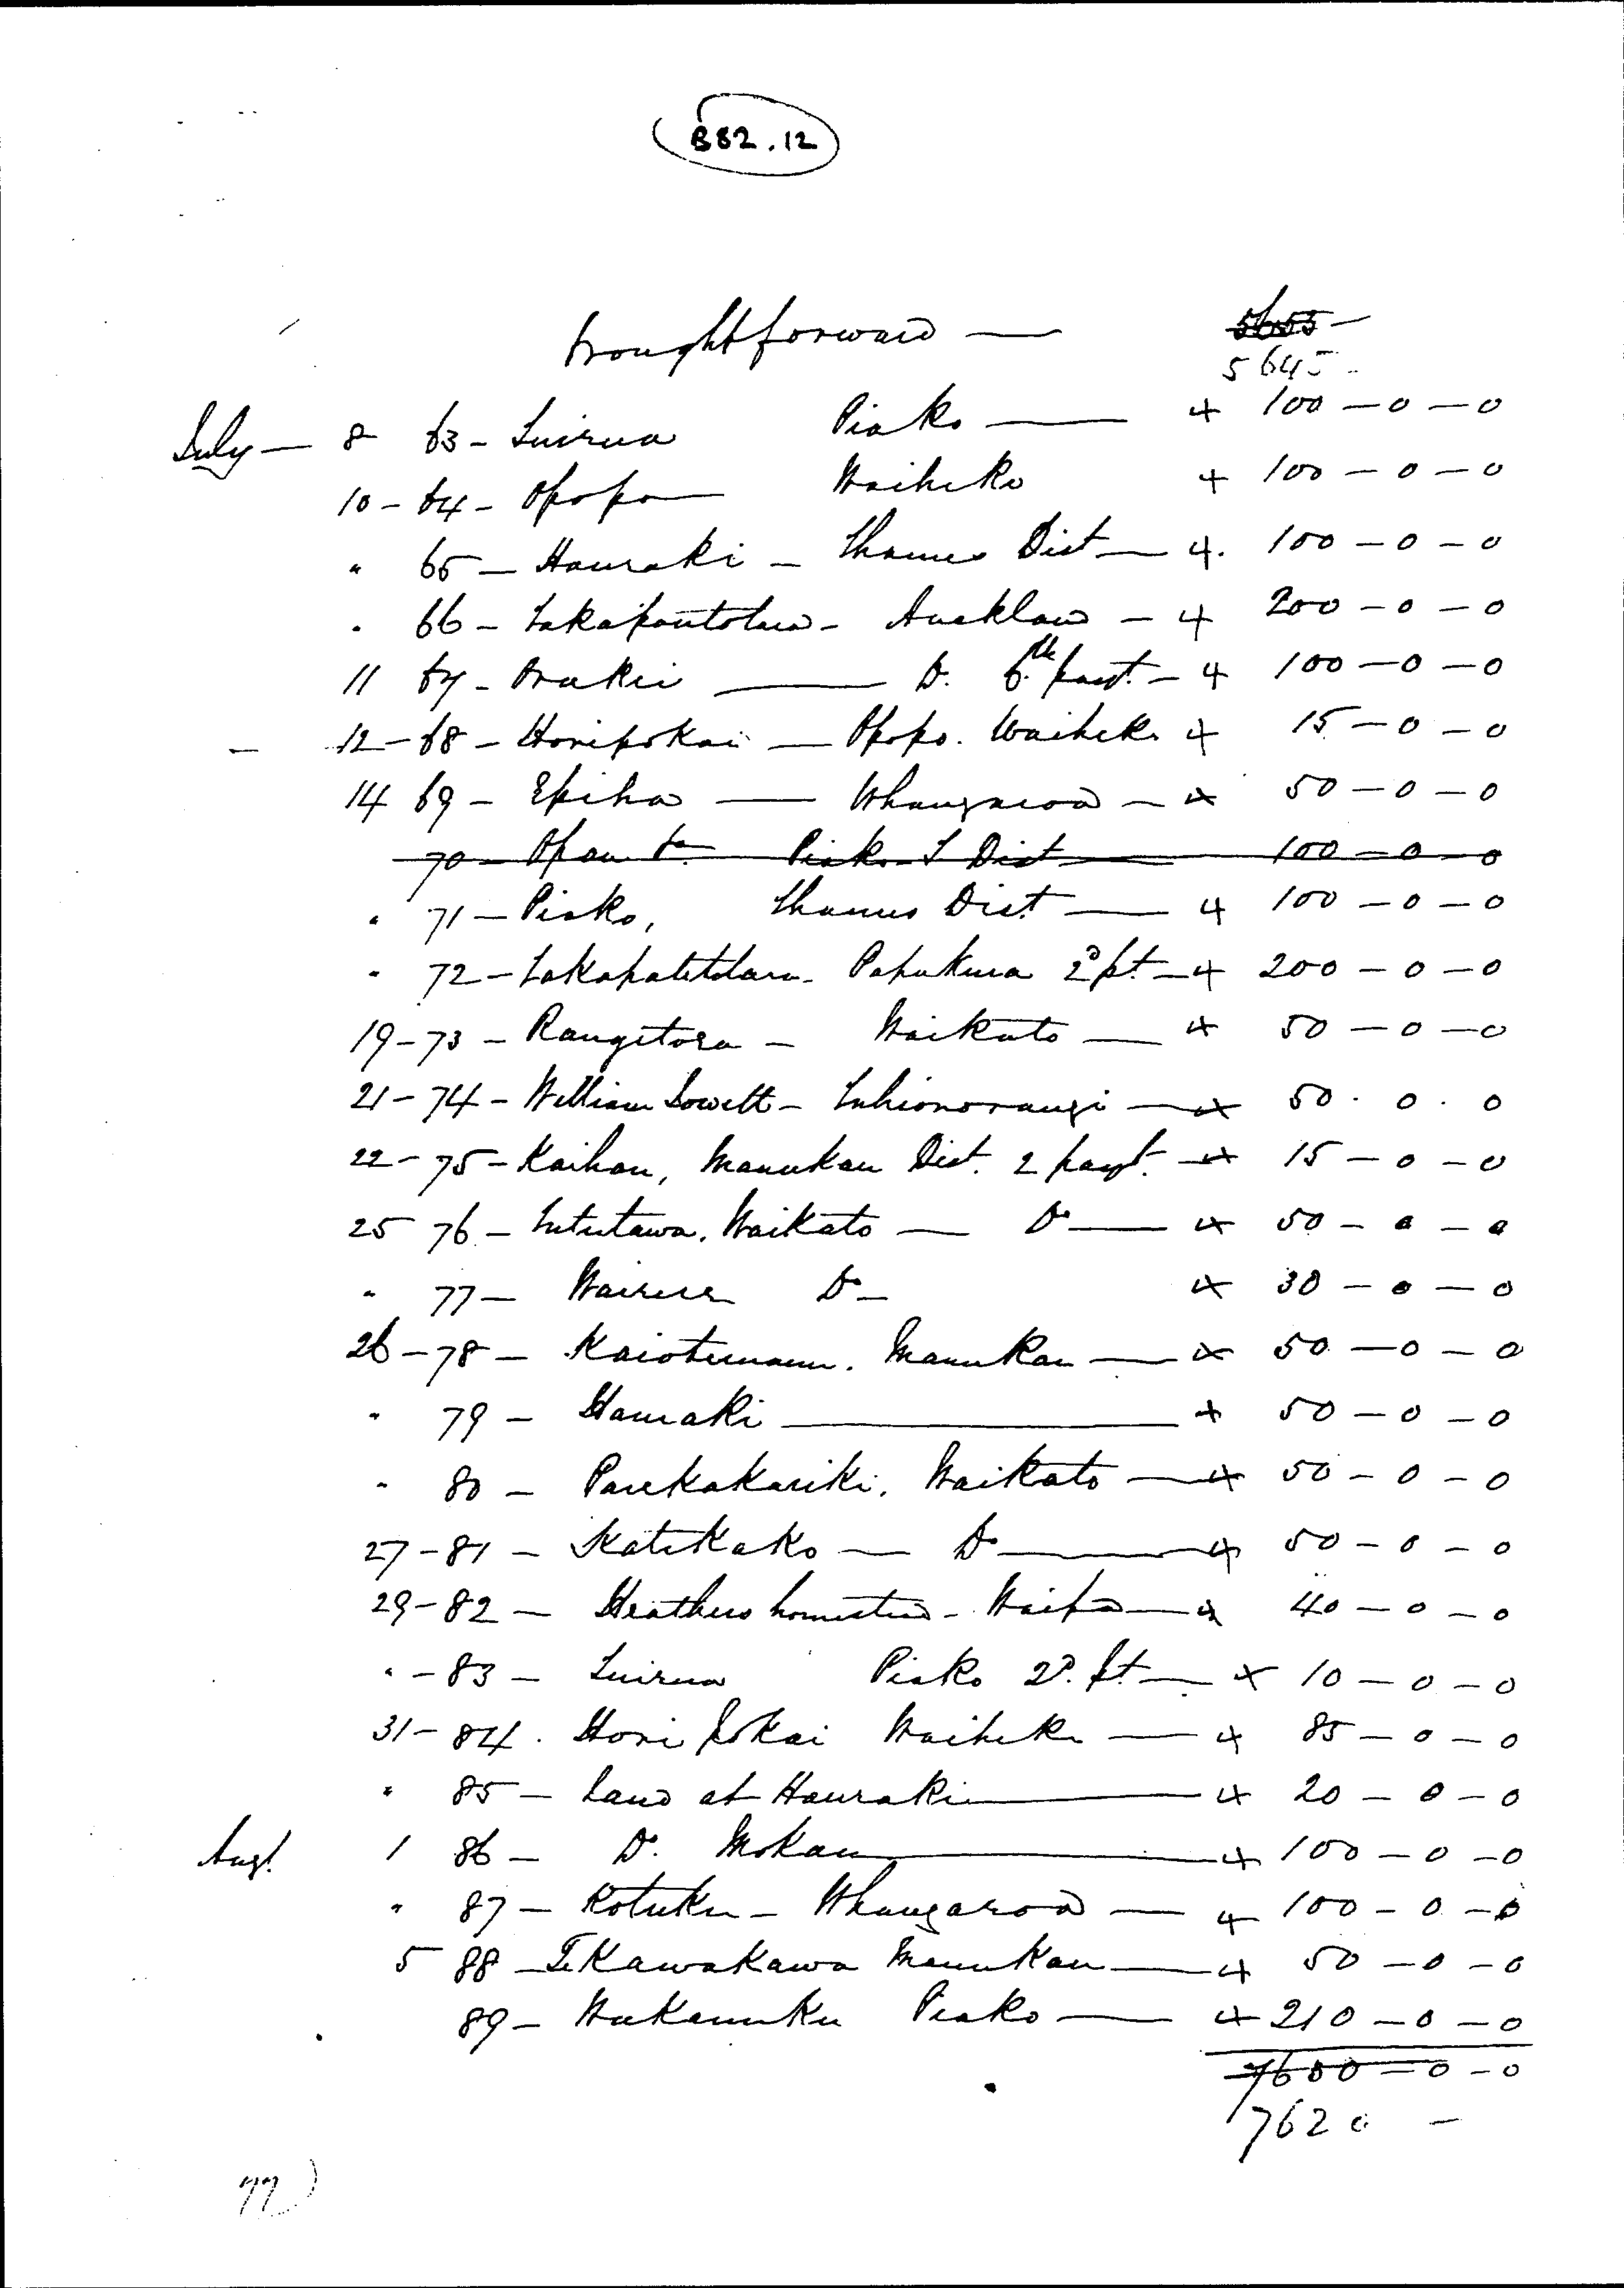 B82.12
Brought forward — 5655 —
5645 -
July — 8 63 - Tuirua Piako — + 100 — 0 — 0
10 - 64 - Opopo — Waiheke + 100 — 0 — 0
" 65 — Hauraki — Thames Dist — 4. 100 — 0 — 0
" 66 - Auckland — 4 200 — 0 — 0
11 67 - Orakei — Do. 6th payt. — 4 100 — 0 — 0
— 12 — 68 - Horipokai — Opopo. Waiheke + 15 — 0 — 0
14 69 - Epiha — Whangaroa — + 50 — 0 — 0
70 — Piako T Dist — 100 — 0 — 0
" 71 — Piako, Thames Dist — 4 100 — 0 — 0
" 72 — Papakura 2d pt. — 4 200 — 0 — 0
19 - 73 - Rangitora — Waikato — + 50 — 0 — 0
21 - 74 - William — + 50 . 0 . 0
22 - 75 - Kaihau, Manukau Dist. 2 payt. — + 15 — 0 — 0
25 76 - Tututawa. Waikato — Do — + 50 — 0 — 0
" 77 — Do — + 30 — 0 — 0
26 - 78 — Manukau — + 50 — 0 — 0
" 79 — Hauraki — + 50 — 0 — 0
" 80 — Parekakariki. Waikato — + 50 — 0 — 0
27 - 81 — Katikako — Do — 4 50 — 0 — 0
29 - 82 — Waipa — 4 40 — 0 — 0
" - 83 — Tuirua Piako 2d. pt. — + 10 — 0 — 0
31 - 84. Hori pokai Waiheke — 4 85 — 0 — 0
" 85 — Land at Hauraki — 4 20 — 0 — 0
Augt. 1 86 — Do. Mokau — 4 100 — 0 — 0
" 87 — Kotuku — Whangaroa — 4 100 — 0 — 0
5 88 — Te Kawakawa Manukau — 4 50 — 0 — 0
89 — Piako — 4 210 — 0 — 0
7600 — 0 — 0
7620 —